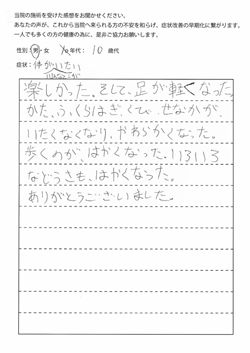 当院の施術を受けた感想をお聞かせください。
あなたの声が、これから当院へ来られる方の不安を和らげ、症状改善の早期化に繋がります。
一人でも多くの方の健康の為に、是非ご協力お願いします。
性別 男・女 年代: 10 歳代
症状: 体がいたい
楽しかった。そして、足が軽くなった。
かた、ふくらはぎ、くび、せなかが、
いたくなくなり、やわらかくなった。
歩くのが、はかくなった。いろいろ
などうさも、はかくなった。
ありがとうございました。